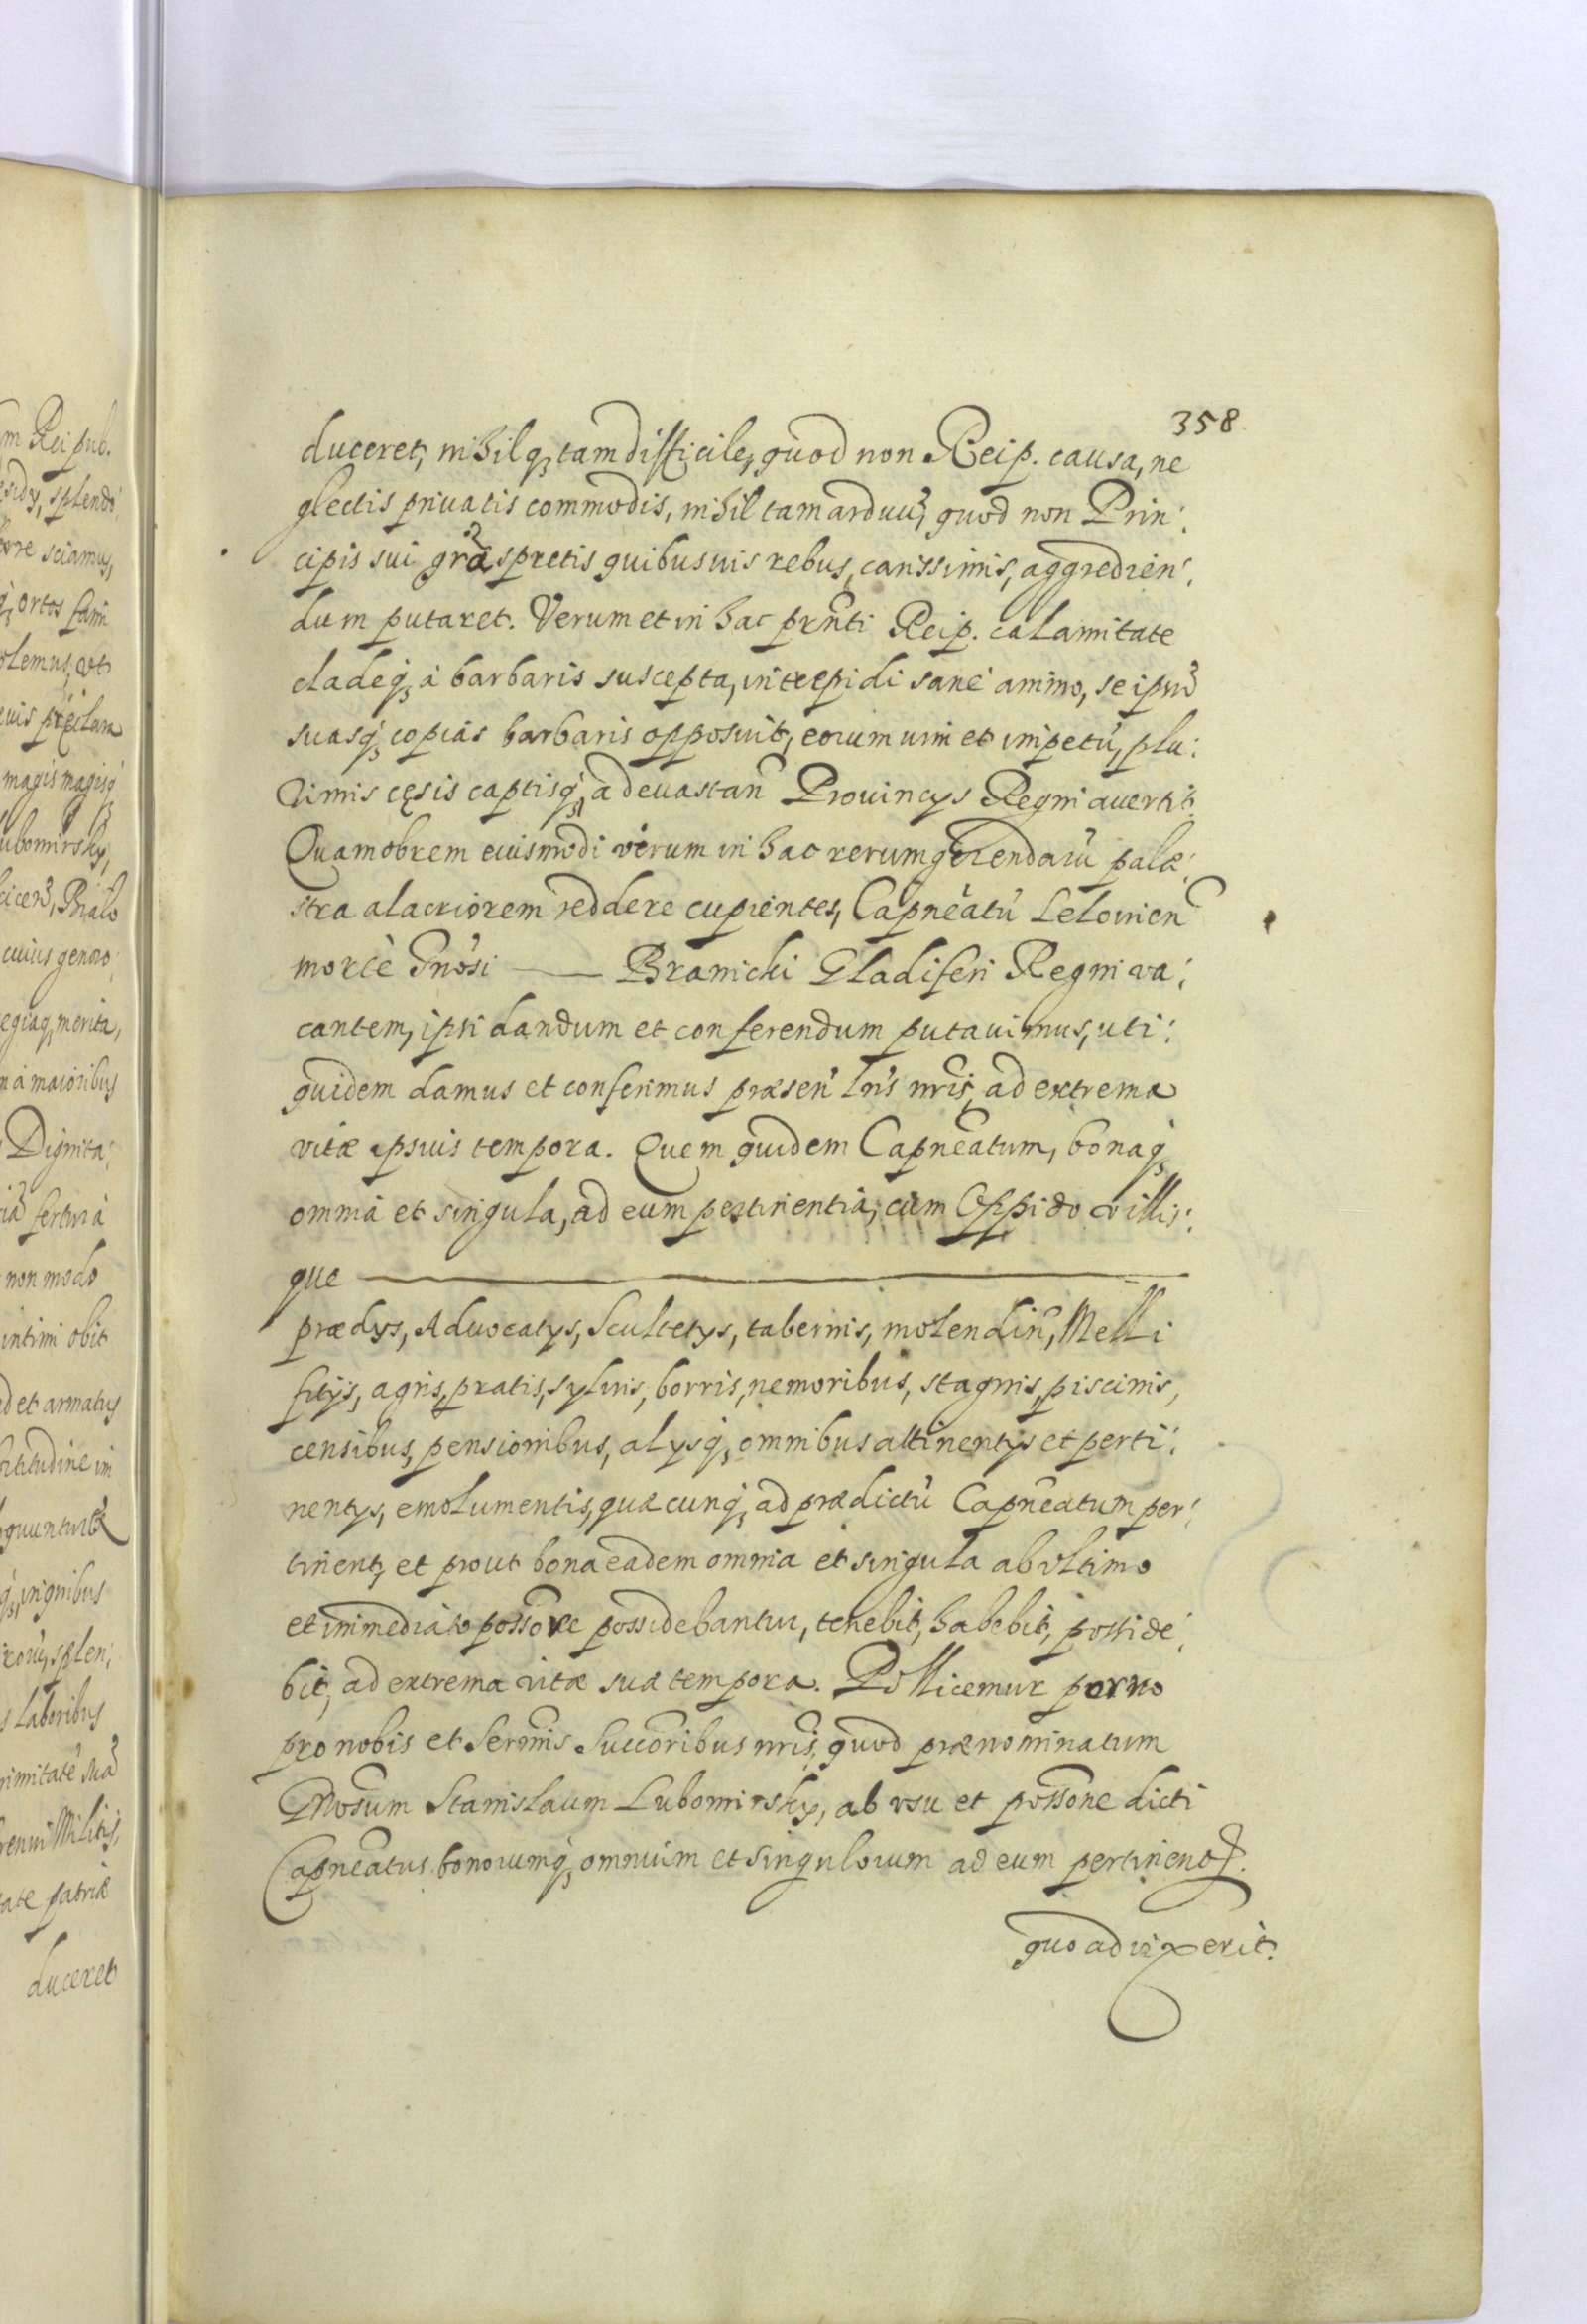 m Rei pub.
splendo
sciamus,
ortos fami
præclara
magis magisq
ubomirsky,
Bialo
cuius genero:
egiaq, merita,
à maioribus
Dignita:
fertur à
non modo
intimi obit
et armatus
quuntur
insignibus
splen:
laboribus
Militis,
patriæ
duceret
358
duceret, nihilq, tam difficile, quod non Reip. causa, ne
glectis priuatis commodis, nihil tam arduũ, quod non Prin:
cipis sui grã spretis quibusuis rebus, carissimis, aggredien:
dum putaret. Verum et in hac prñti Reip. calamitate
cladeq, à barbaris suscepta, intrepidi sanè animo, se ipsũ
suasq, copias barbaris opposuit, eorum uim et impetũ, plu:
rimis cęsis captisq, a deuastan Prouincys Regni auertit.
Quamobrem eiusmodi virum in hac rerum gerendarũ palæ:
stra alacriorem reddere cupientes, Capneatũ Lelouien
morte Gnosi —— Branicki Gladiferi Regni va:
cantem, ipsi dandum et conferendum putauimus, uti:
quidem damus et conferimus præsen lris nris, ad extrema
vitæ ipsius tempora. Quem quidem Capneatum, bonaq,
omnia et singula, ad eum pertinentia, cum Oppido villis:
que ——
prædys, Aduocatys, Scultetys, tabernis, molendin, Melli
ficys, agris, pratis, syluis, borris, nemoribus, stagnis, piscinis,
censibus, pensionibus, alysq, omnibus attinentys et perti:
nentys, emolumentis, quæcunq, ad prædictũ Capneatum per:
tinent, et prout bona eadem omnia et singula ab vltimo
et immediato possore possidebantur, tenebit, habebit, posside:
bit, ad extrema vitæ suæ tempora. Pollicemur porro
pro nobis et Sermis Succoribus nris, quod prænominatum
Gnosum Stanislaum Lubomirsky, ab vsu et possone dicti
Capneatus bonorumq, omnium et singulorum ad eum pertinent.
quoad vixerit.